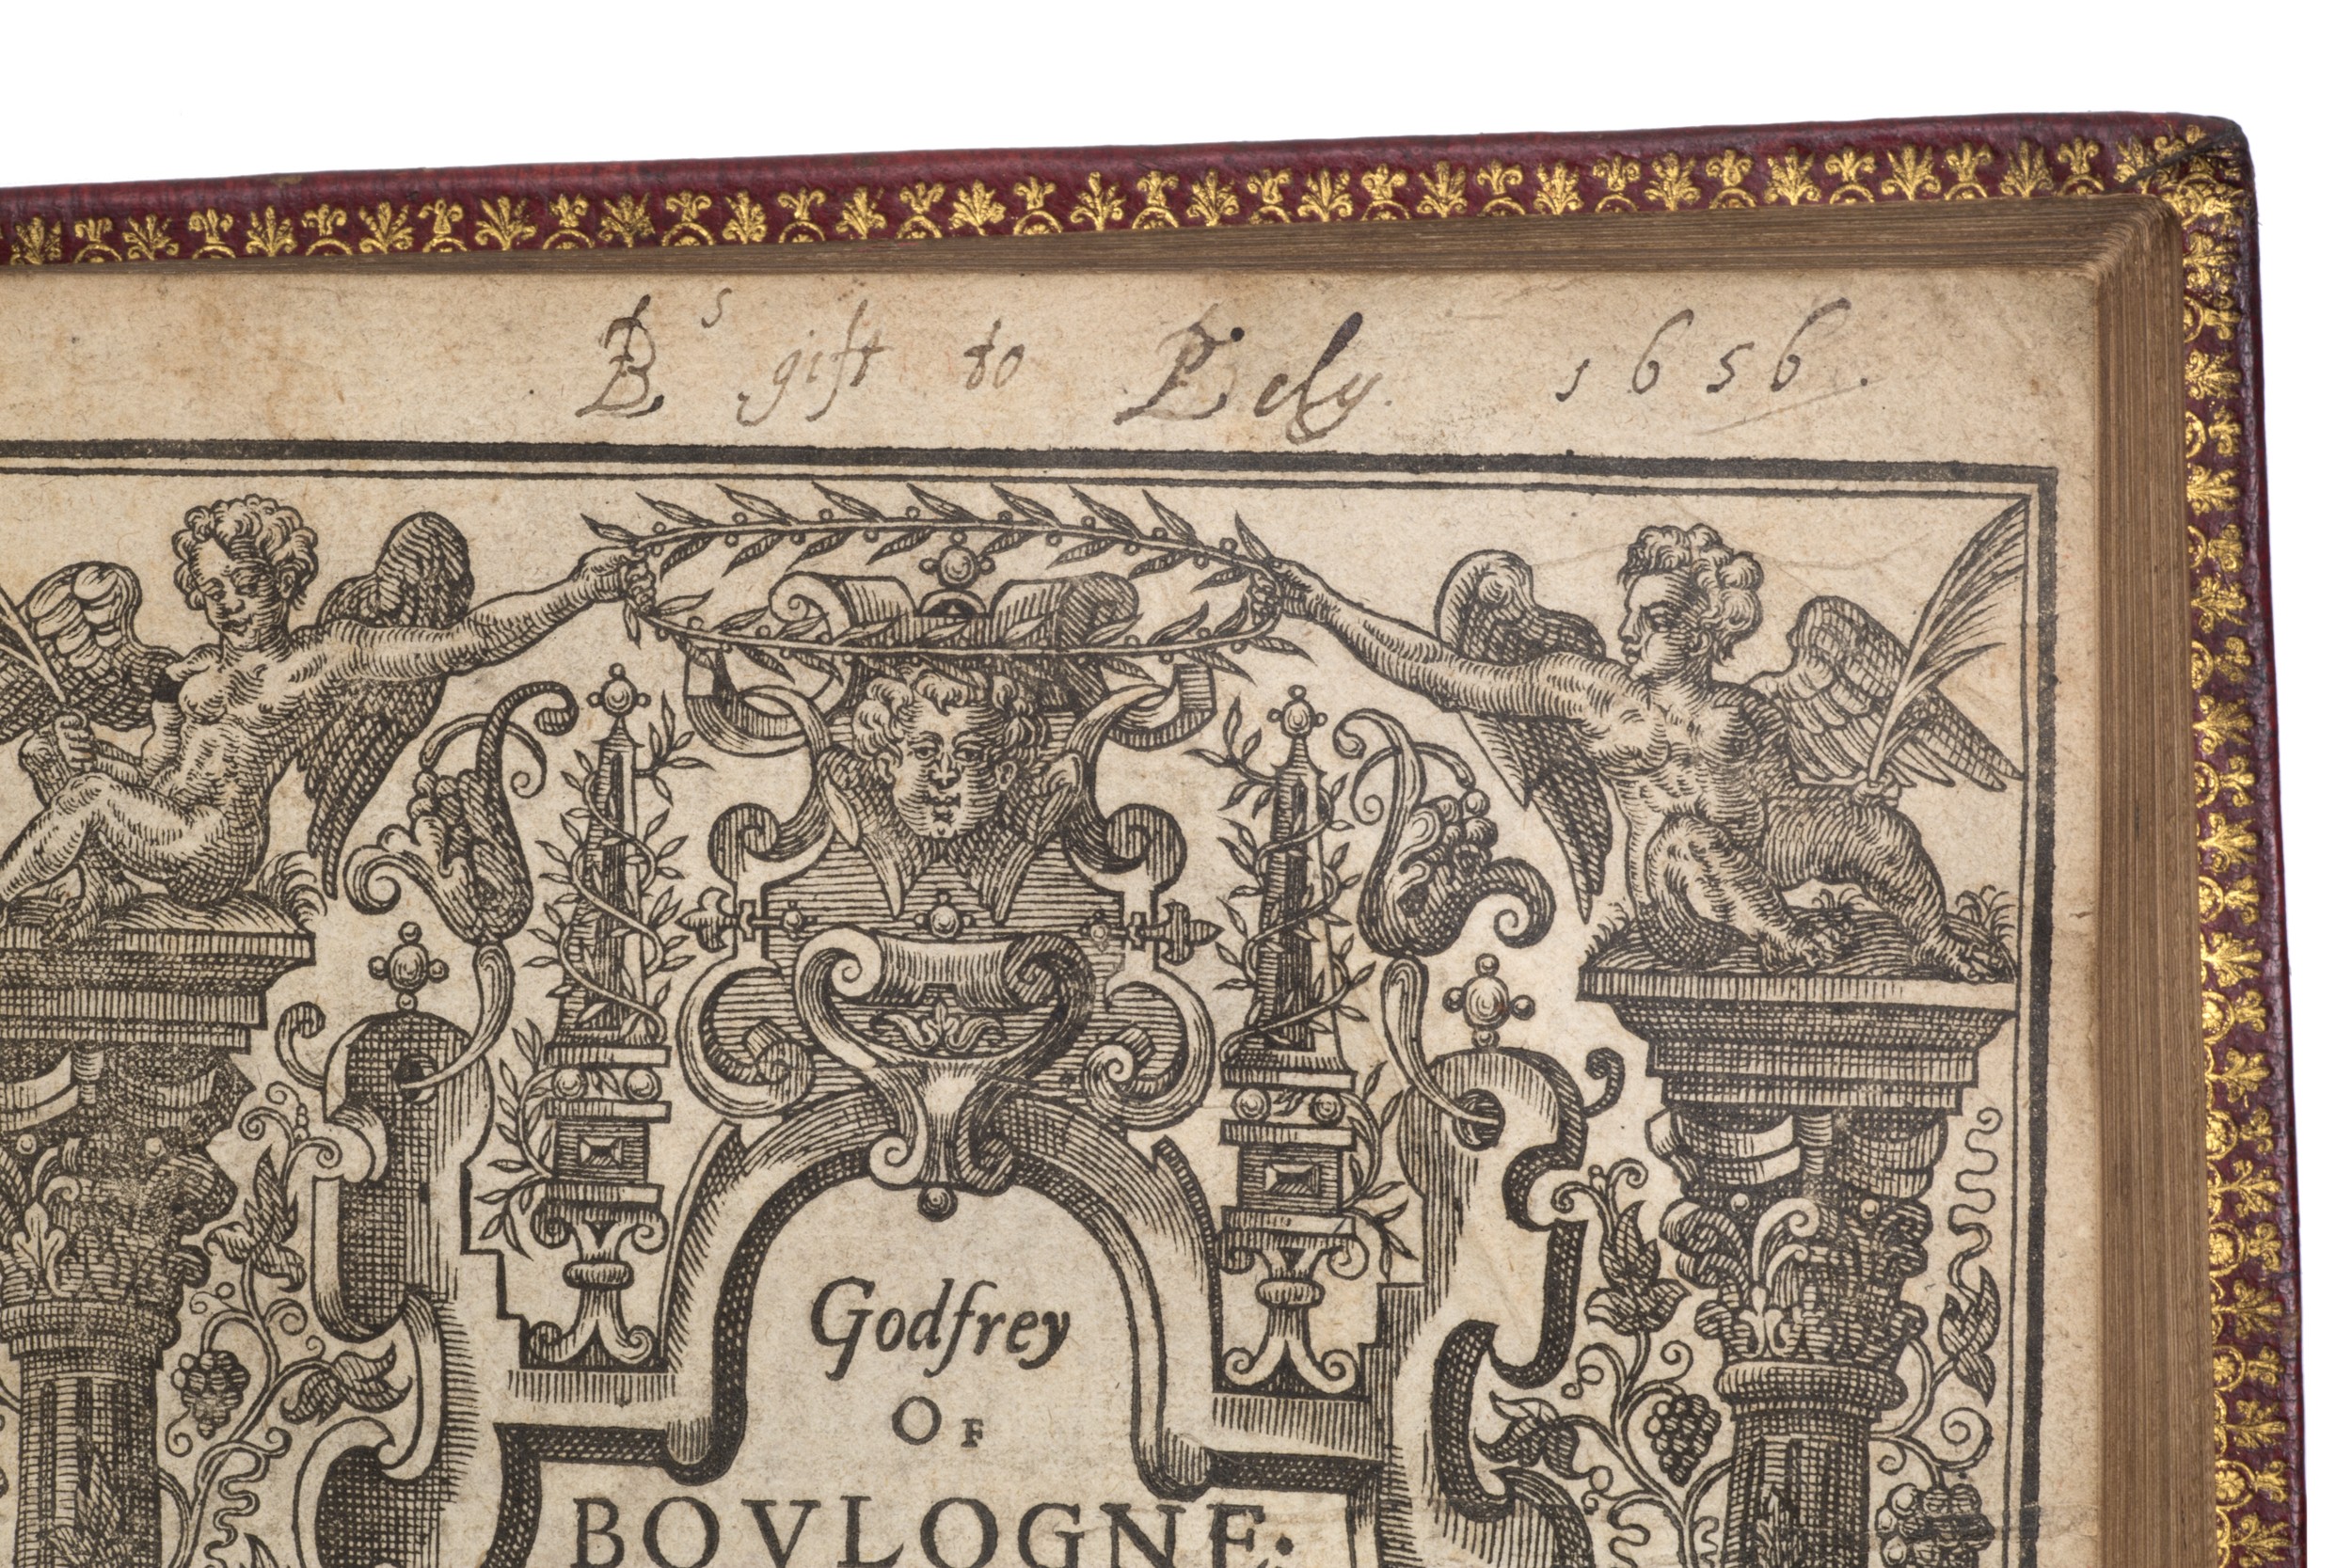 B^s gift to Pely. 1656.
Godfrey
OF
BOVLOGNE: